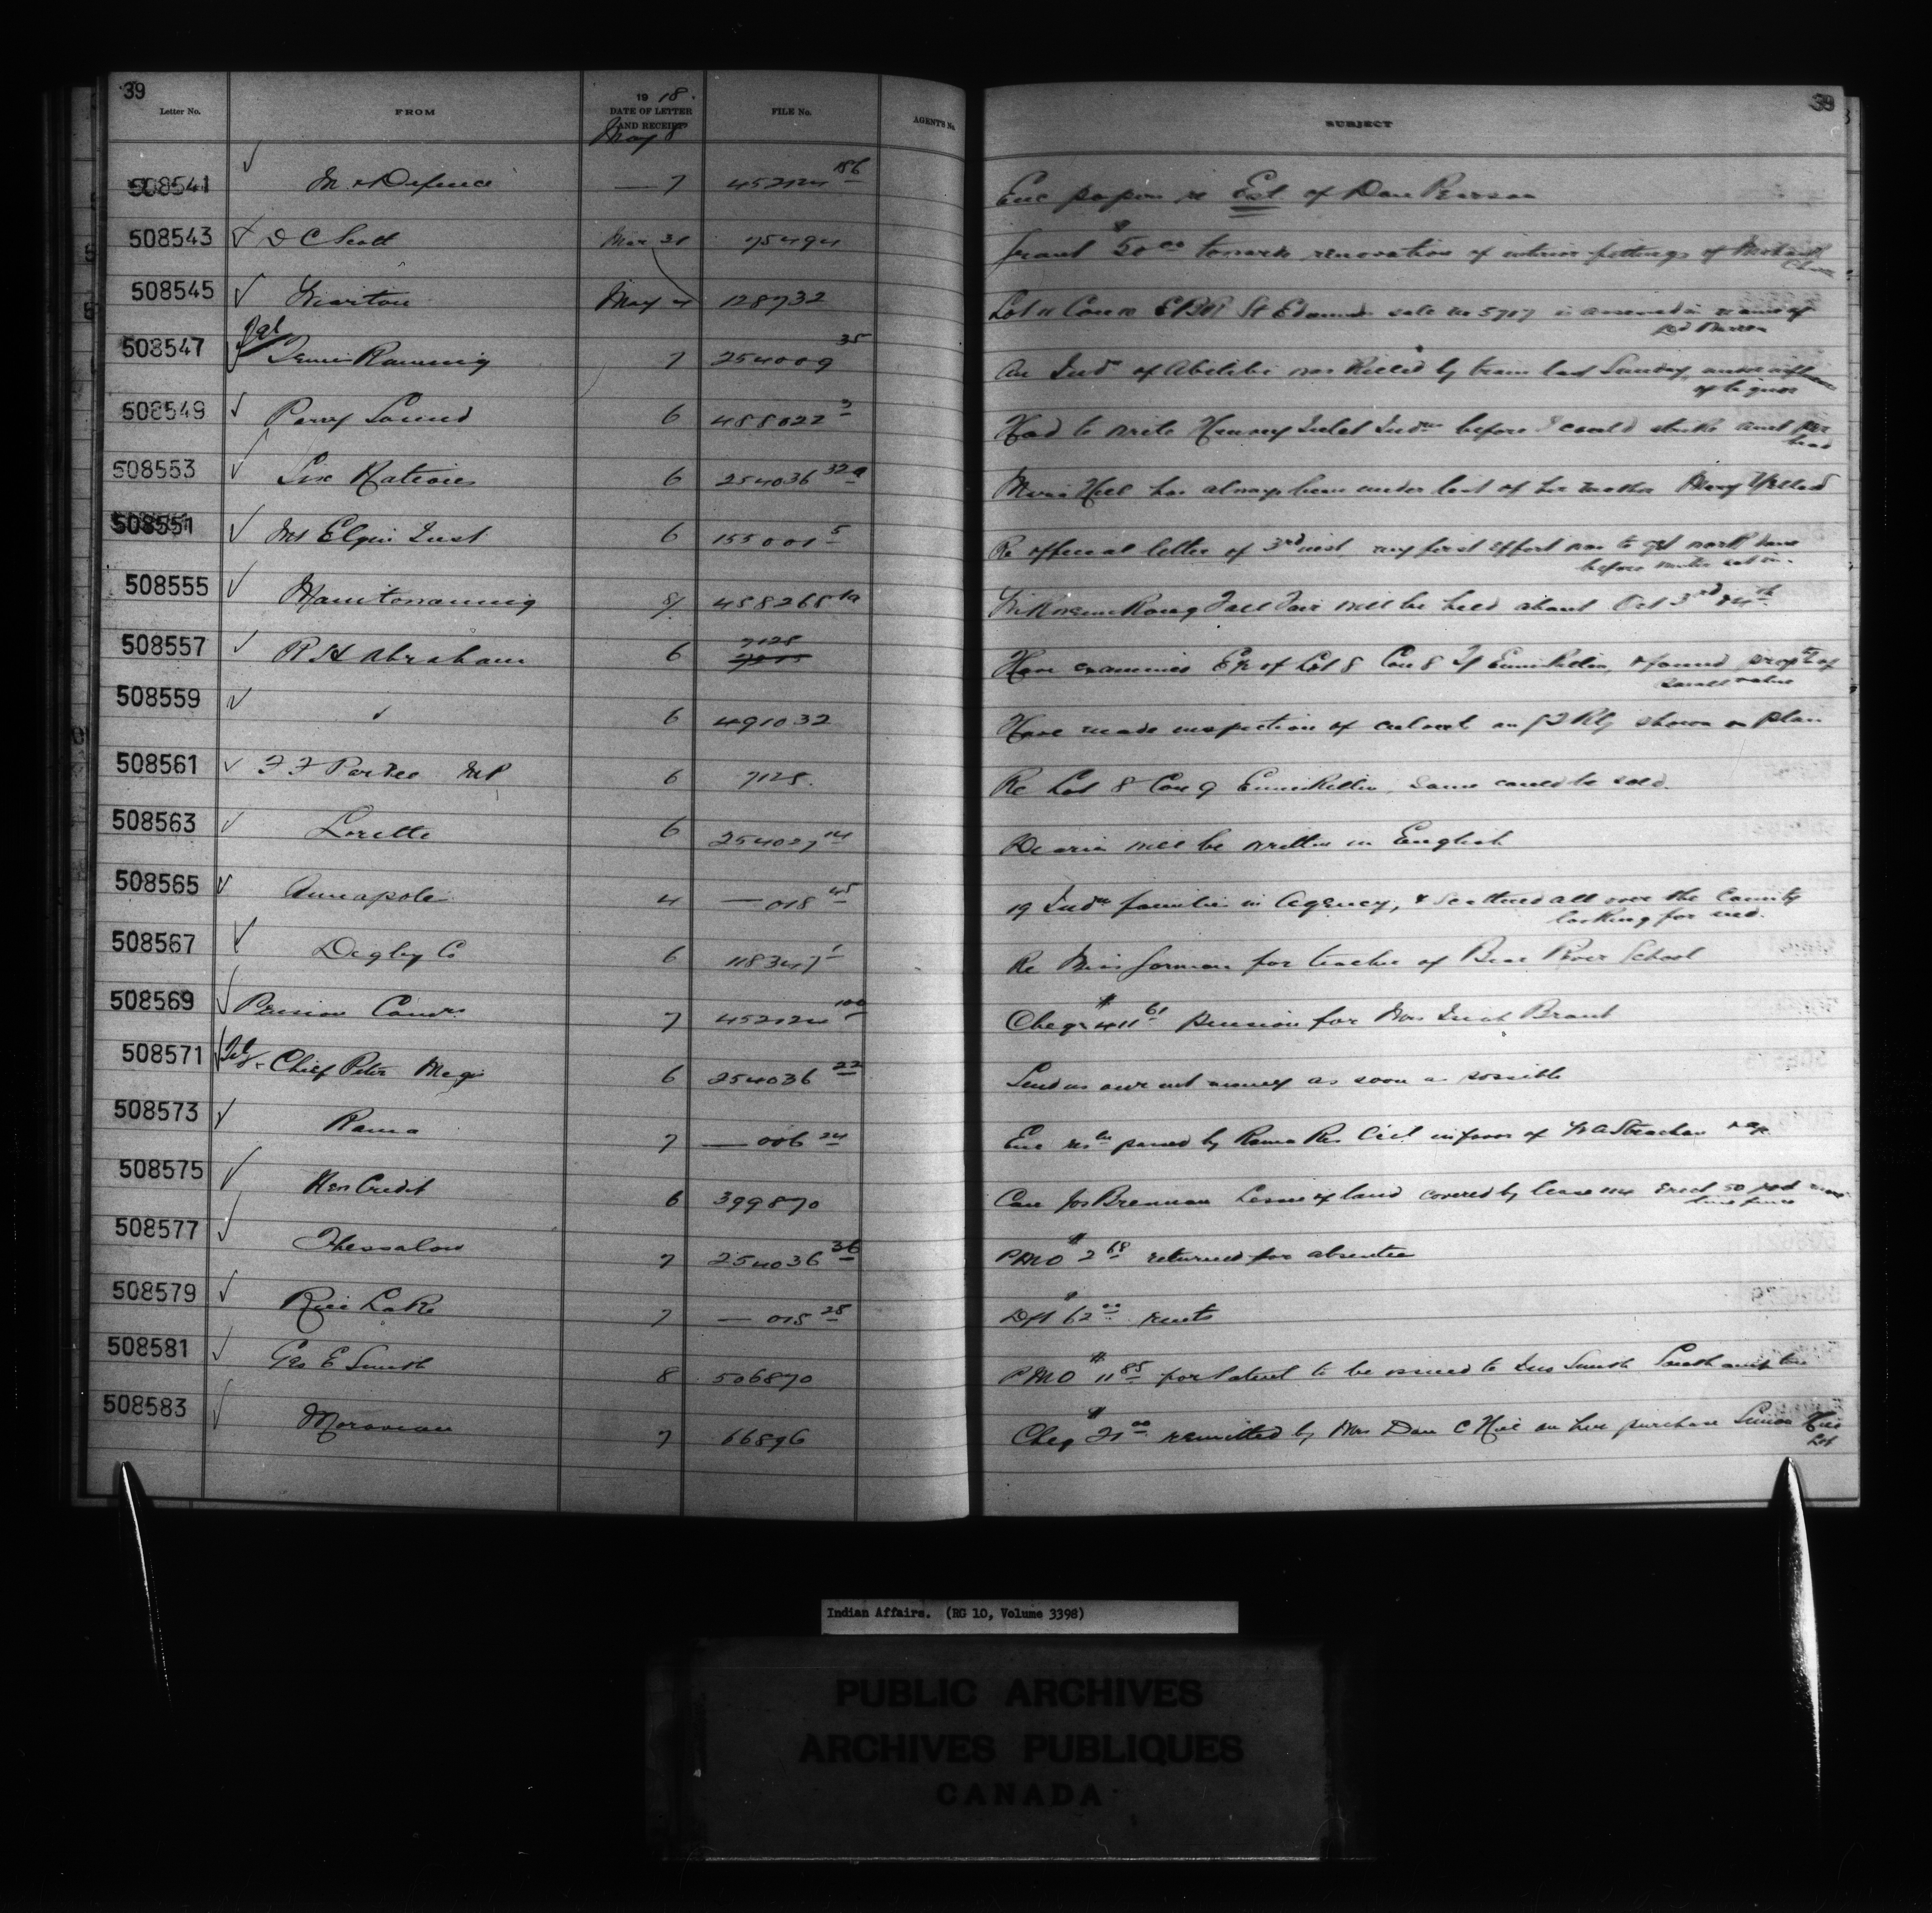 39
39
Letter No. FROM 19 18. DATE OF LETTER AND RECEIPT FILE No. AGENT'S No. SUBJECT
May 8
508541 M. & Defence — 7 452124 186 Enc papers re Est of Dan Pearson
508543 D C Scott Mar 31 75494 Grant $50 00 towards renovation of interior fittings of Mohawk
508545 Wiarton May 4 128732 Lot 11 Con 10 E B R St Edmund sale no 5717 is assessed in name of
508547 Temiskaming 7 254009 35 An Indn of Abitibi was killed by train last Sunday
of liquor
508549 Parry Sound 6 488022 3 Had to write Henvey Inlet Indns before I could strike amt per
head
508553 Six Nations 6 254036 32a Hill has always been under last of her mother
508551 Mt Elgin Inst 6 155001 5 Re official letter of 3rd inst my first effort was to get work done
before
508555 Manitowaning 458268 1a Wikwemikong Fall Fair will be held about Oct 3rd & 4th
508557 R H Abraham 6 7128 Have examined E½ of Lot 8 Con 8 Tp Enniskillen, & found of
small value
508559 " 6 491032 Have made inspection of culvert on G T Rly shown on plan
508561 F F Pardee M P 6 7128. Re Lot 8 Con 9 Enniskillen, same could be sold.
508563 Lorette 6 254027 14 will be written in English
508565 Annapolis 4 — 018 45 19 Indn families in Agency, & scattered all over the County
looking for
508567 Digby Co 6 118347 1 Re Miss Gorman for teacher of Bear River School
508569 Pension Comrs 7 452124 100 Cheqr $411 61 pension for Mrs Brant
508571 Tel Chief Peter 6 254036 22 Send us our money as soon as possible
508573 Rama 7 — 006 24 Enc passed by Rama Res Ccl in favor of W A Strachan
508575 New Credit 6 399870 Can Jos Brennan Lessee of land covered by lease erect 50 rod
line fence
508577 Thessalon 7 254036 36 P M O $2 68 returned for absentee
508579 Rice Lake 7 — 018 28 Dft $62 00 rents
508581 Geo E Smith 8 506870 P M O $11 85 for Patent to be issued to Smith Southampton
508583 Moravian 7 66896 Cheq $21 00 remitted by Mrs Dan C Hill on her purchase Simon Hill
Lot
Indian Affairs. (RG 10, Volume 3398)
PUBLIC ARCHIVES
ARCHIVES PUBLIQUES
CANADA